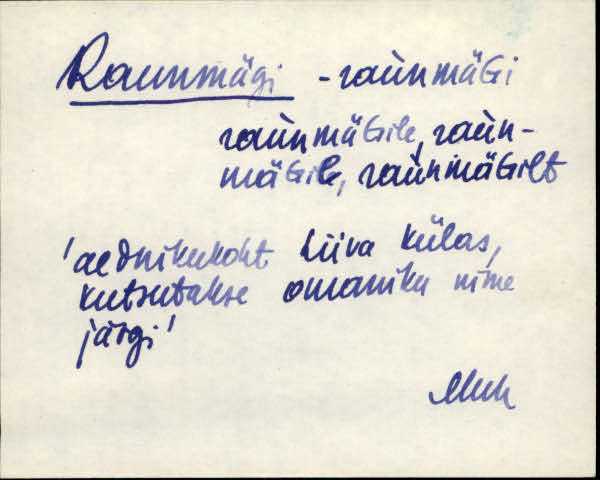 Raunmägi - raùnmäGi
raùnmäGile, raùn-
mäGile, raùnmäGilt
'aednikukoht Liiva külas,
kutsutakse omaniku nime
järgi'